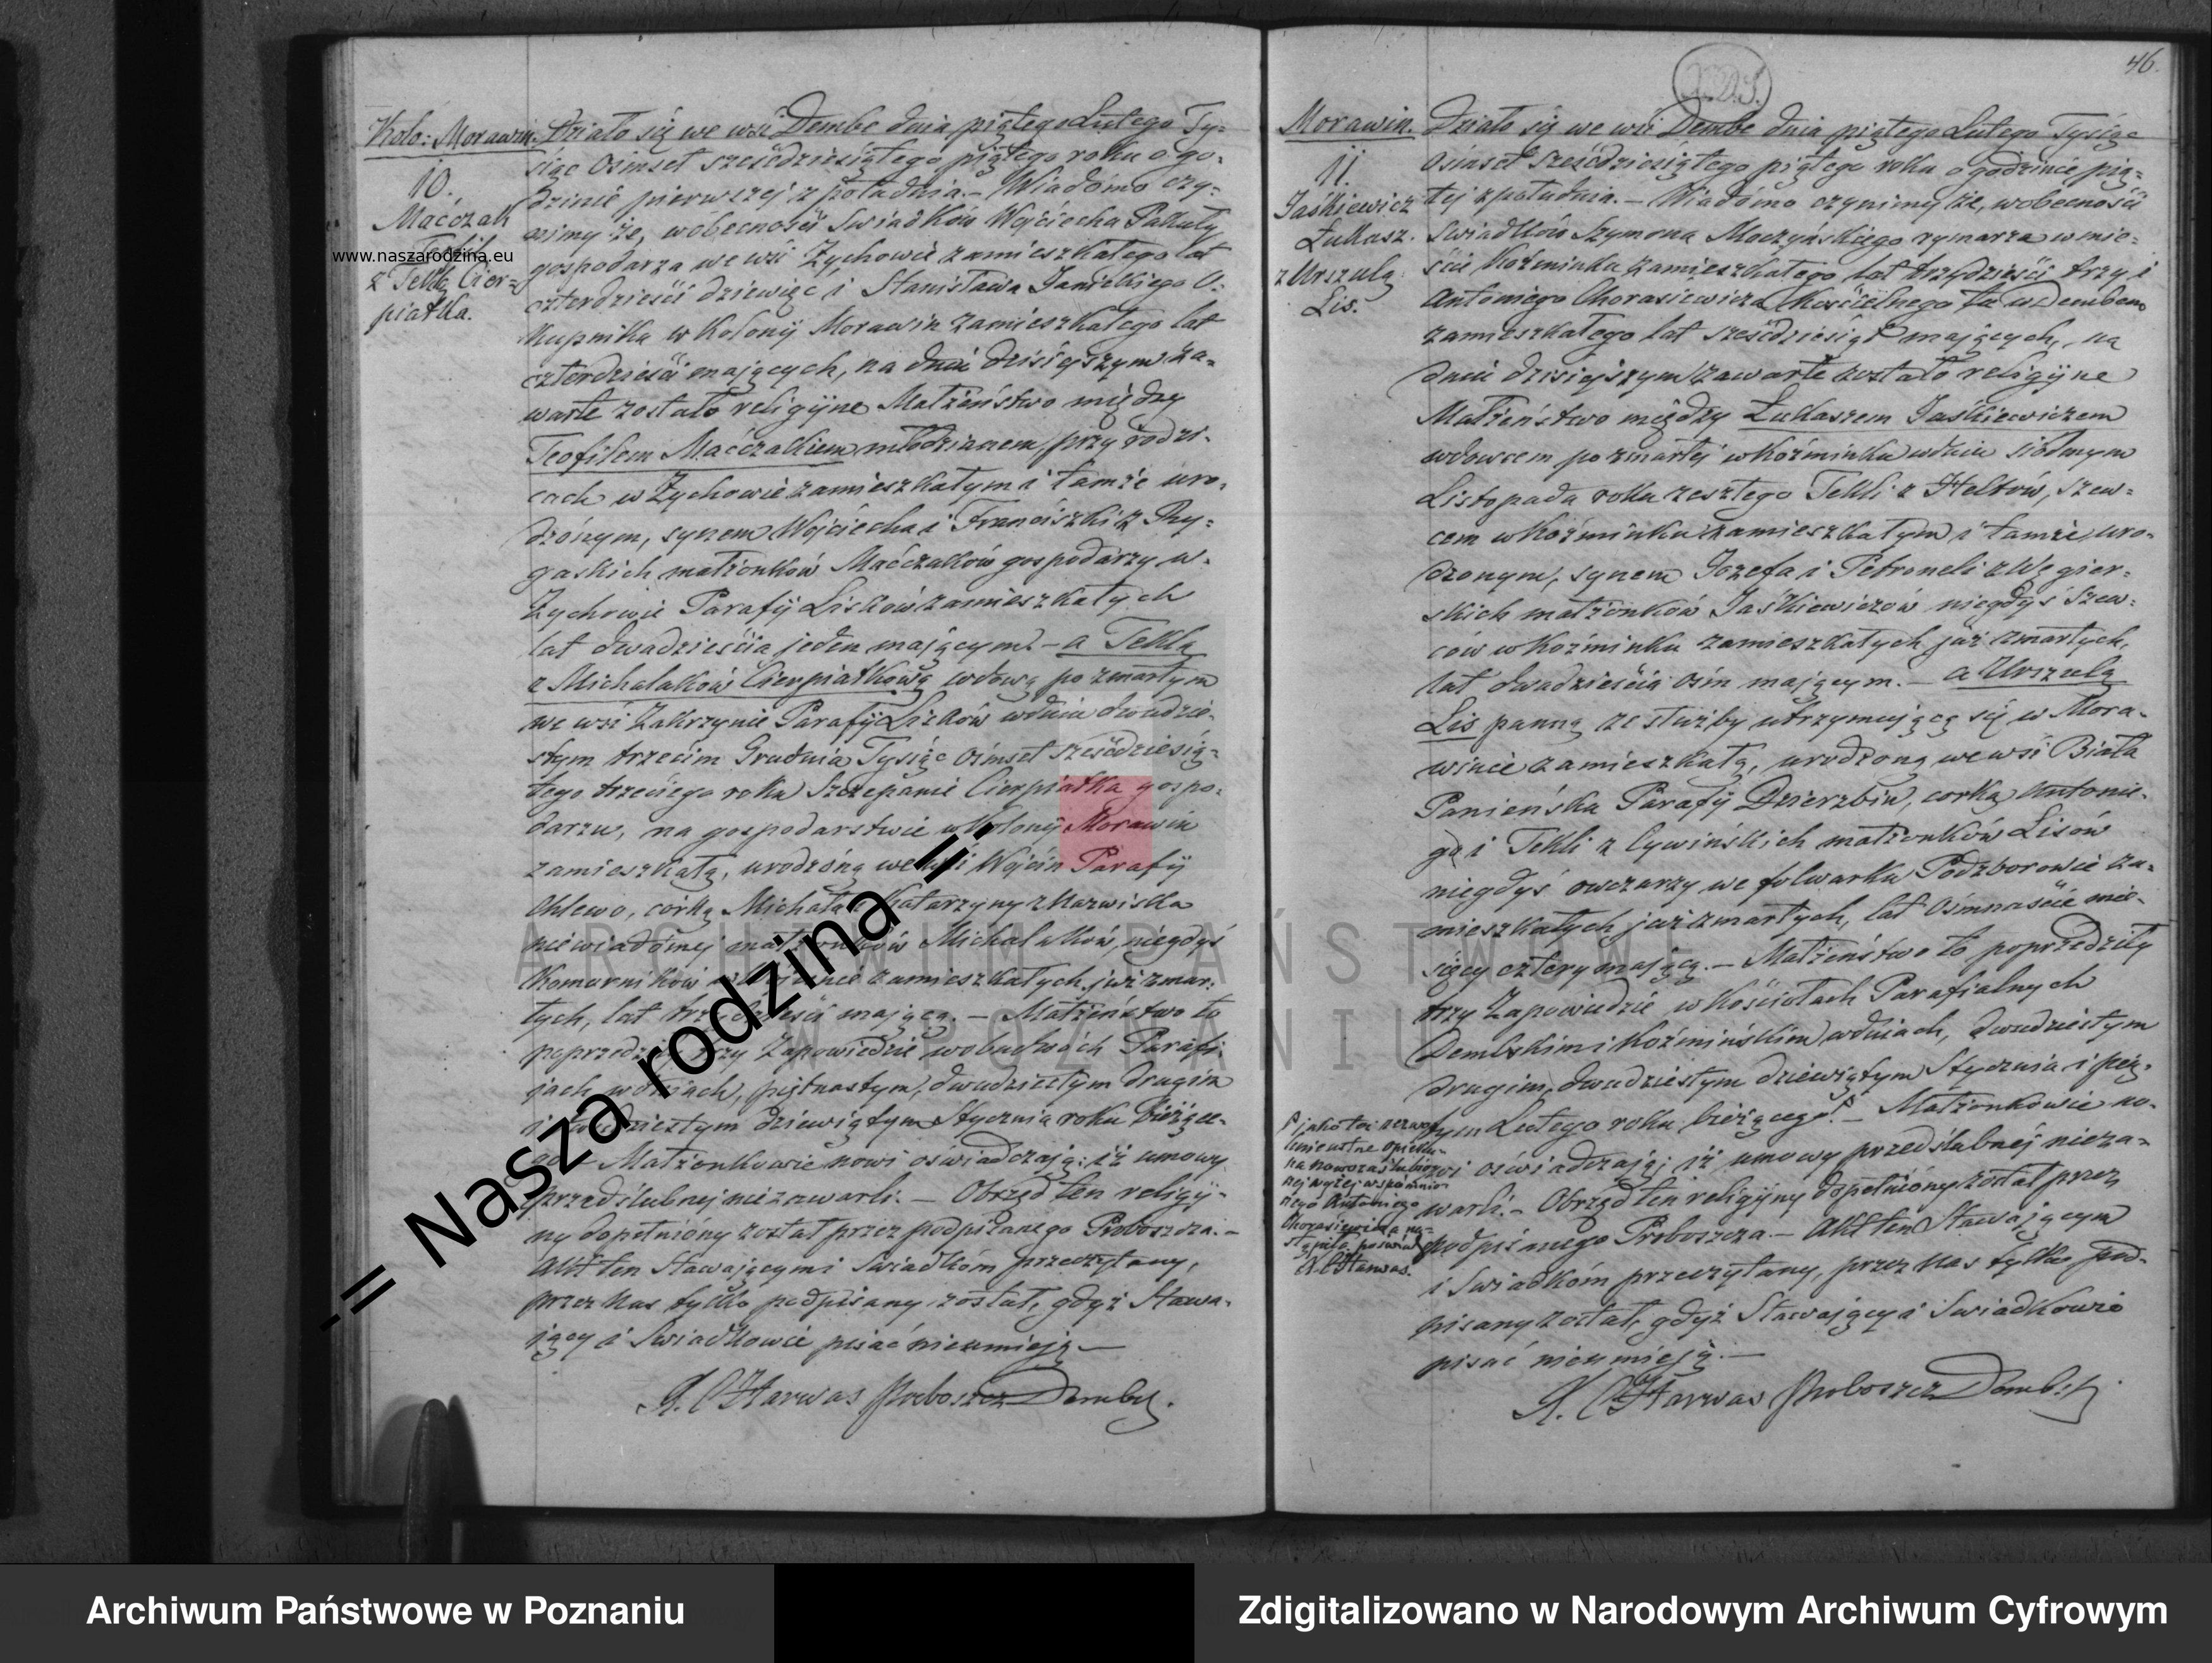 Kolo: Morawin.
10.
Maćczak
Teofil
www.naszarodzina.eu
z Teklą Cier=
piatka.
Działo się we wsi Dembe dnia piątego Lutego Ty=
siąc Osimset sześćdziesiątego piątego roku o go=
dzinie pierwszej z południa.- Wiadomo czy=
nimy że, wobecności Swiadków Wojciecha Pakuły
gospodarza we wsi Zychowie zamieszkałego lat
czterdzieści dziewięć i Stanisława Janickiego O=
kupnika w Kolonij Morawin zamieszkałego lat
czterdzieści mających, na dniu dzisiejszym za=
warte zostało religijne Małżeństwo między
Teofilem Maćczakiem młodzianem, przy rodzi=
cach w Zychowie zamieszkałym i tamże uro=
dzónym, synem Wojciecha i Franciszki z Ry=
gaskich małżonków Maćczaków gospodarzy w
Zychowie Parafij Lisków zamieszkałych
lat dwadzieścia jeden mającym.- a Teklą
z Michalaków Cierpiatkową wdową po zmarłym
we wsi Zakrzynie Parafij Lisków wdniu dwudzie=
stym trzecim Grudnia Tysiąc Osimset sześćdziesią=
tego trzeciego roku Szczepanie Cierpiatka gospo=
darzu, na gospodarstwie w Kolonij Morawin
zamieszkałą, urodzóną we wsi Wojcin Parafij
Chlewo, córką Michała i Katarzyny z Nazwiska
niewiadómej małżonków Michalaków, niegdyś
Komorników zamieszkałych, już zmar=
tych, lat trzydzieści mającą.- Małżeństwo to
poprzedziły trzy Zapowiedzie wobudwóch Parafi=
jach wdniach, piętnastym, dwudziestym drugim
i dwudziestym dziewiątym Stycznia roku bieżące=
go.- Małżonkowie nowi oświadczają; iż umowy
przedślubnej niezawarli.- Obrzęd ten religij=
ny dopełniony został przez podpisanego Proboszcza.-
Akt ten Stawającymi Swiadkóm przeczytany,
przez nas tylko podpisany został, gdyż Stawa=
jący i Swiadkowie pisać nieumieją.-
X. C Harwas Proboszcz Dembsk.
46.
Morawin.
11.
Jaśkiewicz
Łukasz
z Urszulą
Lis.
Działo się we wsi Dembe dnia piątego Lutego Tysiąc
Osimset sześćdziesiątego piątego roku o godzinie pią=
tej z południa.- Wiadómo czynimy że, wobecności
Swiadków Szymona Moczyńskiego rymarza w mie=
ście Koźminku zamieszkałego lat trzydzieści trzy i
Antoniego Chorasiewicza Kościelnego tu w Dembem
zamieszkałego lat sześćdziesiąt mających, na
dniu dzisiejszym zawarte zostało religijne
Małżeństwo między Łukaszem Jaśkiewiczem
wdowcem po zmarłej w Koźminku wdniu siódmym
Listopada roku zeszłego Tekli z Heltów, szew=
cem w Koźminku zamieszkałym i tamże, uro=
dzonym, synem Jozefa i Petroneli z Węgier=
skich małżonków Jaśkiewiczów niegdyś Szew=
ców w Koźminku zamieszkałych już zmarłych,
lat dwadzieścia ośm mającym.- a Urszulą
Lis panną ze służby utrzymującą się w Mora=
winie zamieszkałą, urodzoną we wsi Biała
Panieńska Parafij Dzierzbin, corką Antonie=
go i Tekli z Cywińskich małżonków Lisów
niegdyś owczarzy we folwarku Podzborowie za=
mieszkałych już zmarłych, lat Osimnaście mie=
sięcy cztery mającą.- Małżeństwo to poprzedziły
trzy Zapowiedzie w Kościołach Parafjalnych
Dembskim i Koźmińskim wdniach, dwudziestym
drugim, dwudziestym dziewiątym Stycznia i pią=
tym Lutego roku bieżącego.- Małżonkowie no=
wi oświadczają; iż umowy przedślubnej nieza=
warli.- Obrzęd ten religijny dopełniony został przez
podpisanego Proboszcza.- Akt ten Stawającym
i Swiadkóm przeczytany, przez nas tylko pod=
pisany został, gdyż Stawający i Swiadkowie
pisać nieumieją.-
X. C Harwas Proboszcz Dembski
jakoteż zezwo=
lenie ustne opieku=
na nowozaślubio=
nej wyżej wspomnio=
nego Antoniego
Chorasiewicza na=
stąpiło poświad
X. C Harwas.
-= Nasza rodzina =-
ARCHIWUM PAŃSTWOWE
W POZNANIU
Archiwum Państwowe w Poznaniu
Zdigitalizowano w Narodowym Archiwum Cyfrowym